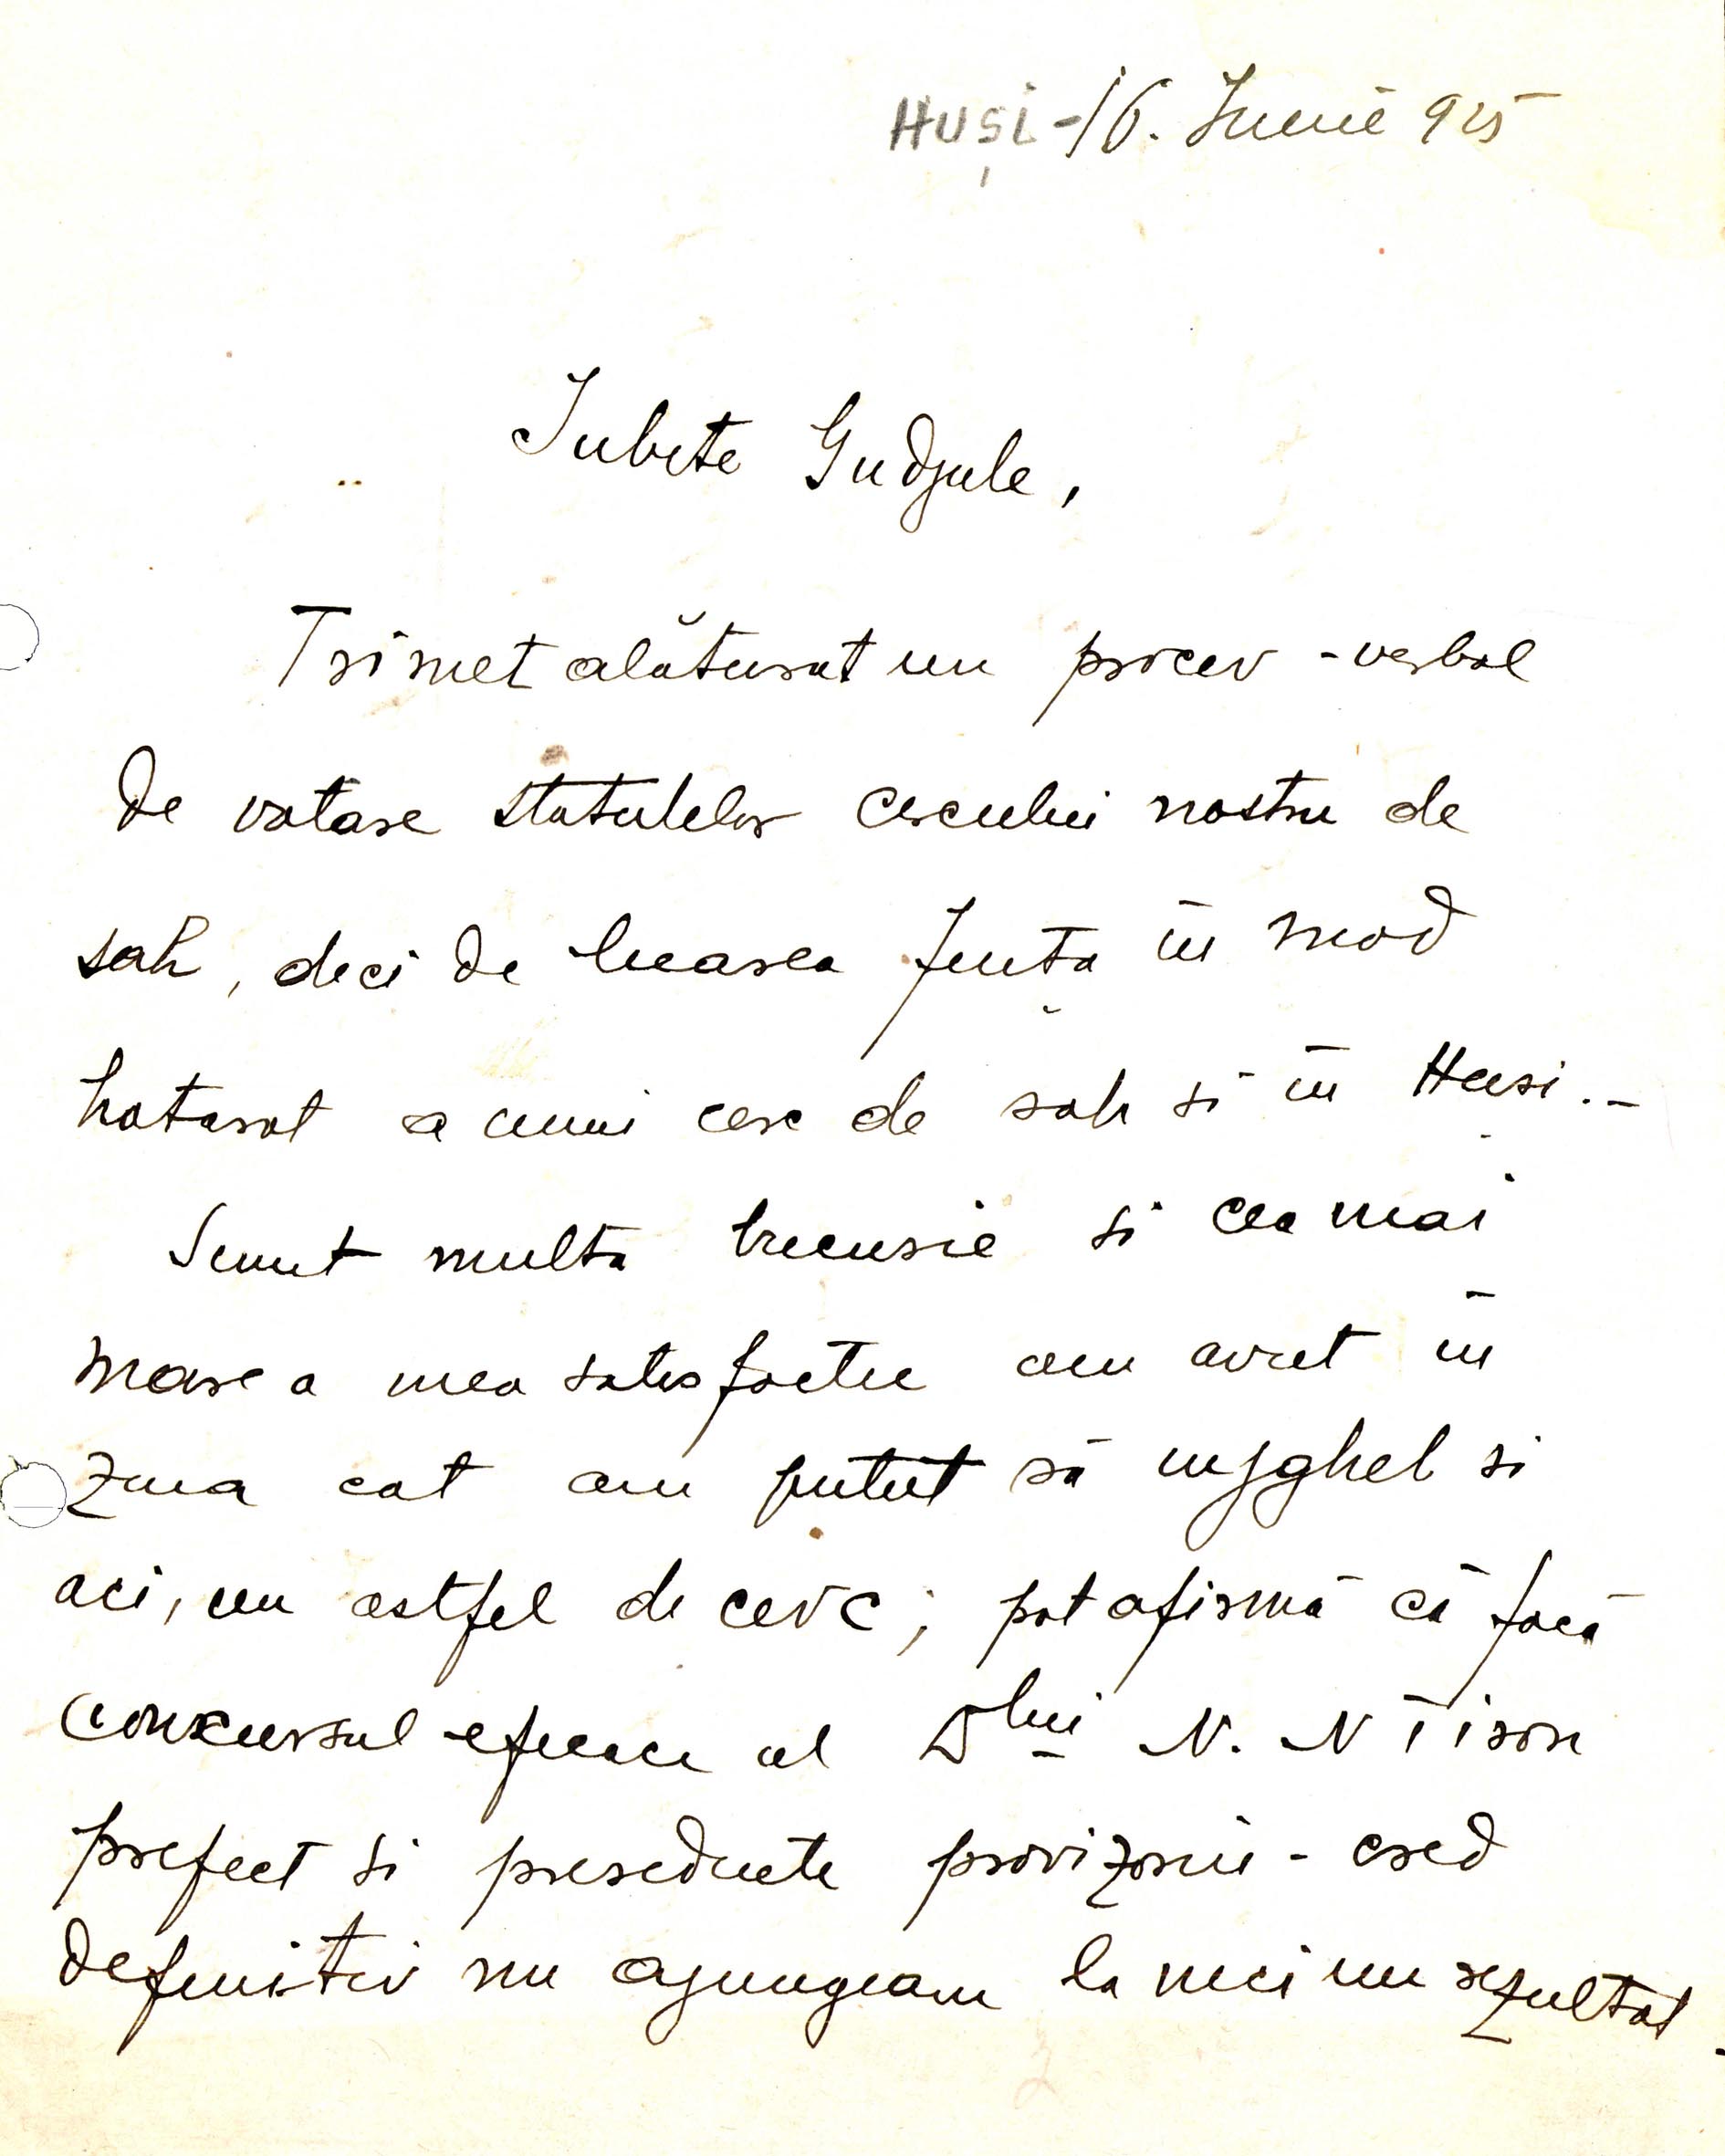 HUȘI - 16. Iunie 925
Iubite Gudjule,
Trimet alăturat un proces-verbal
de votare statutelor cercului nostru de
șah, deci de luarea ființa în mod
hotarat a unui cerc de sah si în Husi.-
Sunt multa bucurie si cea mai
mare a mea satisfactie am avut în
ziua cat am putut să injgheb si
aci, un astfel de cerc; pot afirmă că fară
concursul eficace al Dlui N. N Tiron
prefect si presedinte provizoriu - cred
definitiv nu ajungeam la nici un rezultat.